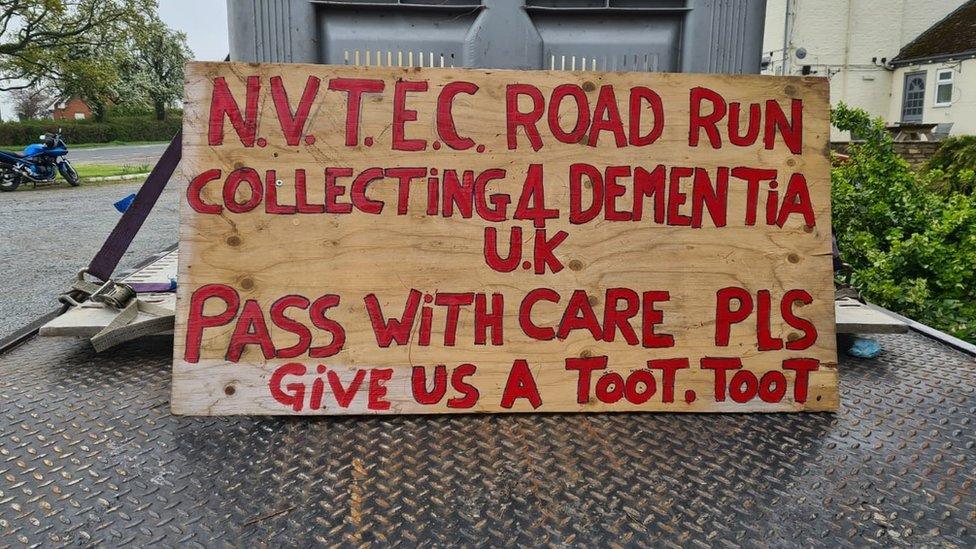 N.V.T.E.C. ROAD RUN
COLLECTiNG 4 DEMENTiA
U.K.
PASS WiTH CARE PLS
GiVE US A TOOT. TOOT.